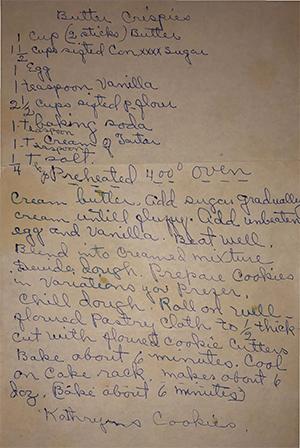 Butter Crispies
1 cup (2 sticks) Butter
1 1/2 cups sifted Con xxxx sugar
1 Egg
1 teaspoon Vanilla
2 1/2 cups sifted p.flour
1 teaspoon baking soda
1 teaspoon Cream of Tartar
1/4 t. salt.
Preheated 400° oven
Cream butter. Add sugar gradually
cream untill fluffy. Add unbeaten
egg and vanilla. Beat well.
Blend into creamed mixture
Devide dough. Prepare Cookies
in Variations you prefer.
Chill dough. Roll on well-
floured pastry cloth to 1/2 thick
cut with floured cookie cutters
Bake about 6 minutes. Cool
on Cake rack. makes about 6
doz. (Bake about 6 minutes)
Kathryns Cookies.